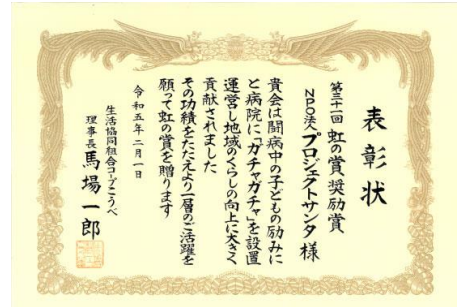 表彰状
第三十一回 虹の賞奨励賞
NPO法人プロジェクトサンタ 様
貴会は闘病中の子どもの励みに
と病院に「ガチャガチャ」を設置
運営し地域のくらしの向上に大きく
貢献されました
その功績をたたえより一層のご活躍を
願って虹の賞を贈ります
令和五年二月一日
生活協同組合コープこうべ
理事長 馬場一郎